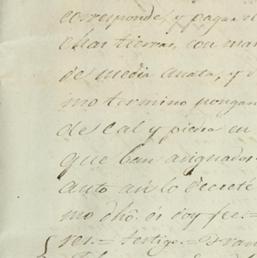 corresponde, y pague el
chas tierras, con mas
de media anata, y
mo termino pongan
de cal y piedra en
que han asignados
auto asi lo decreté
mo dho. es doy fee. =
res. = testigo. =